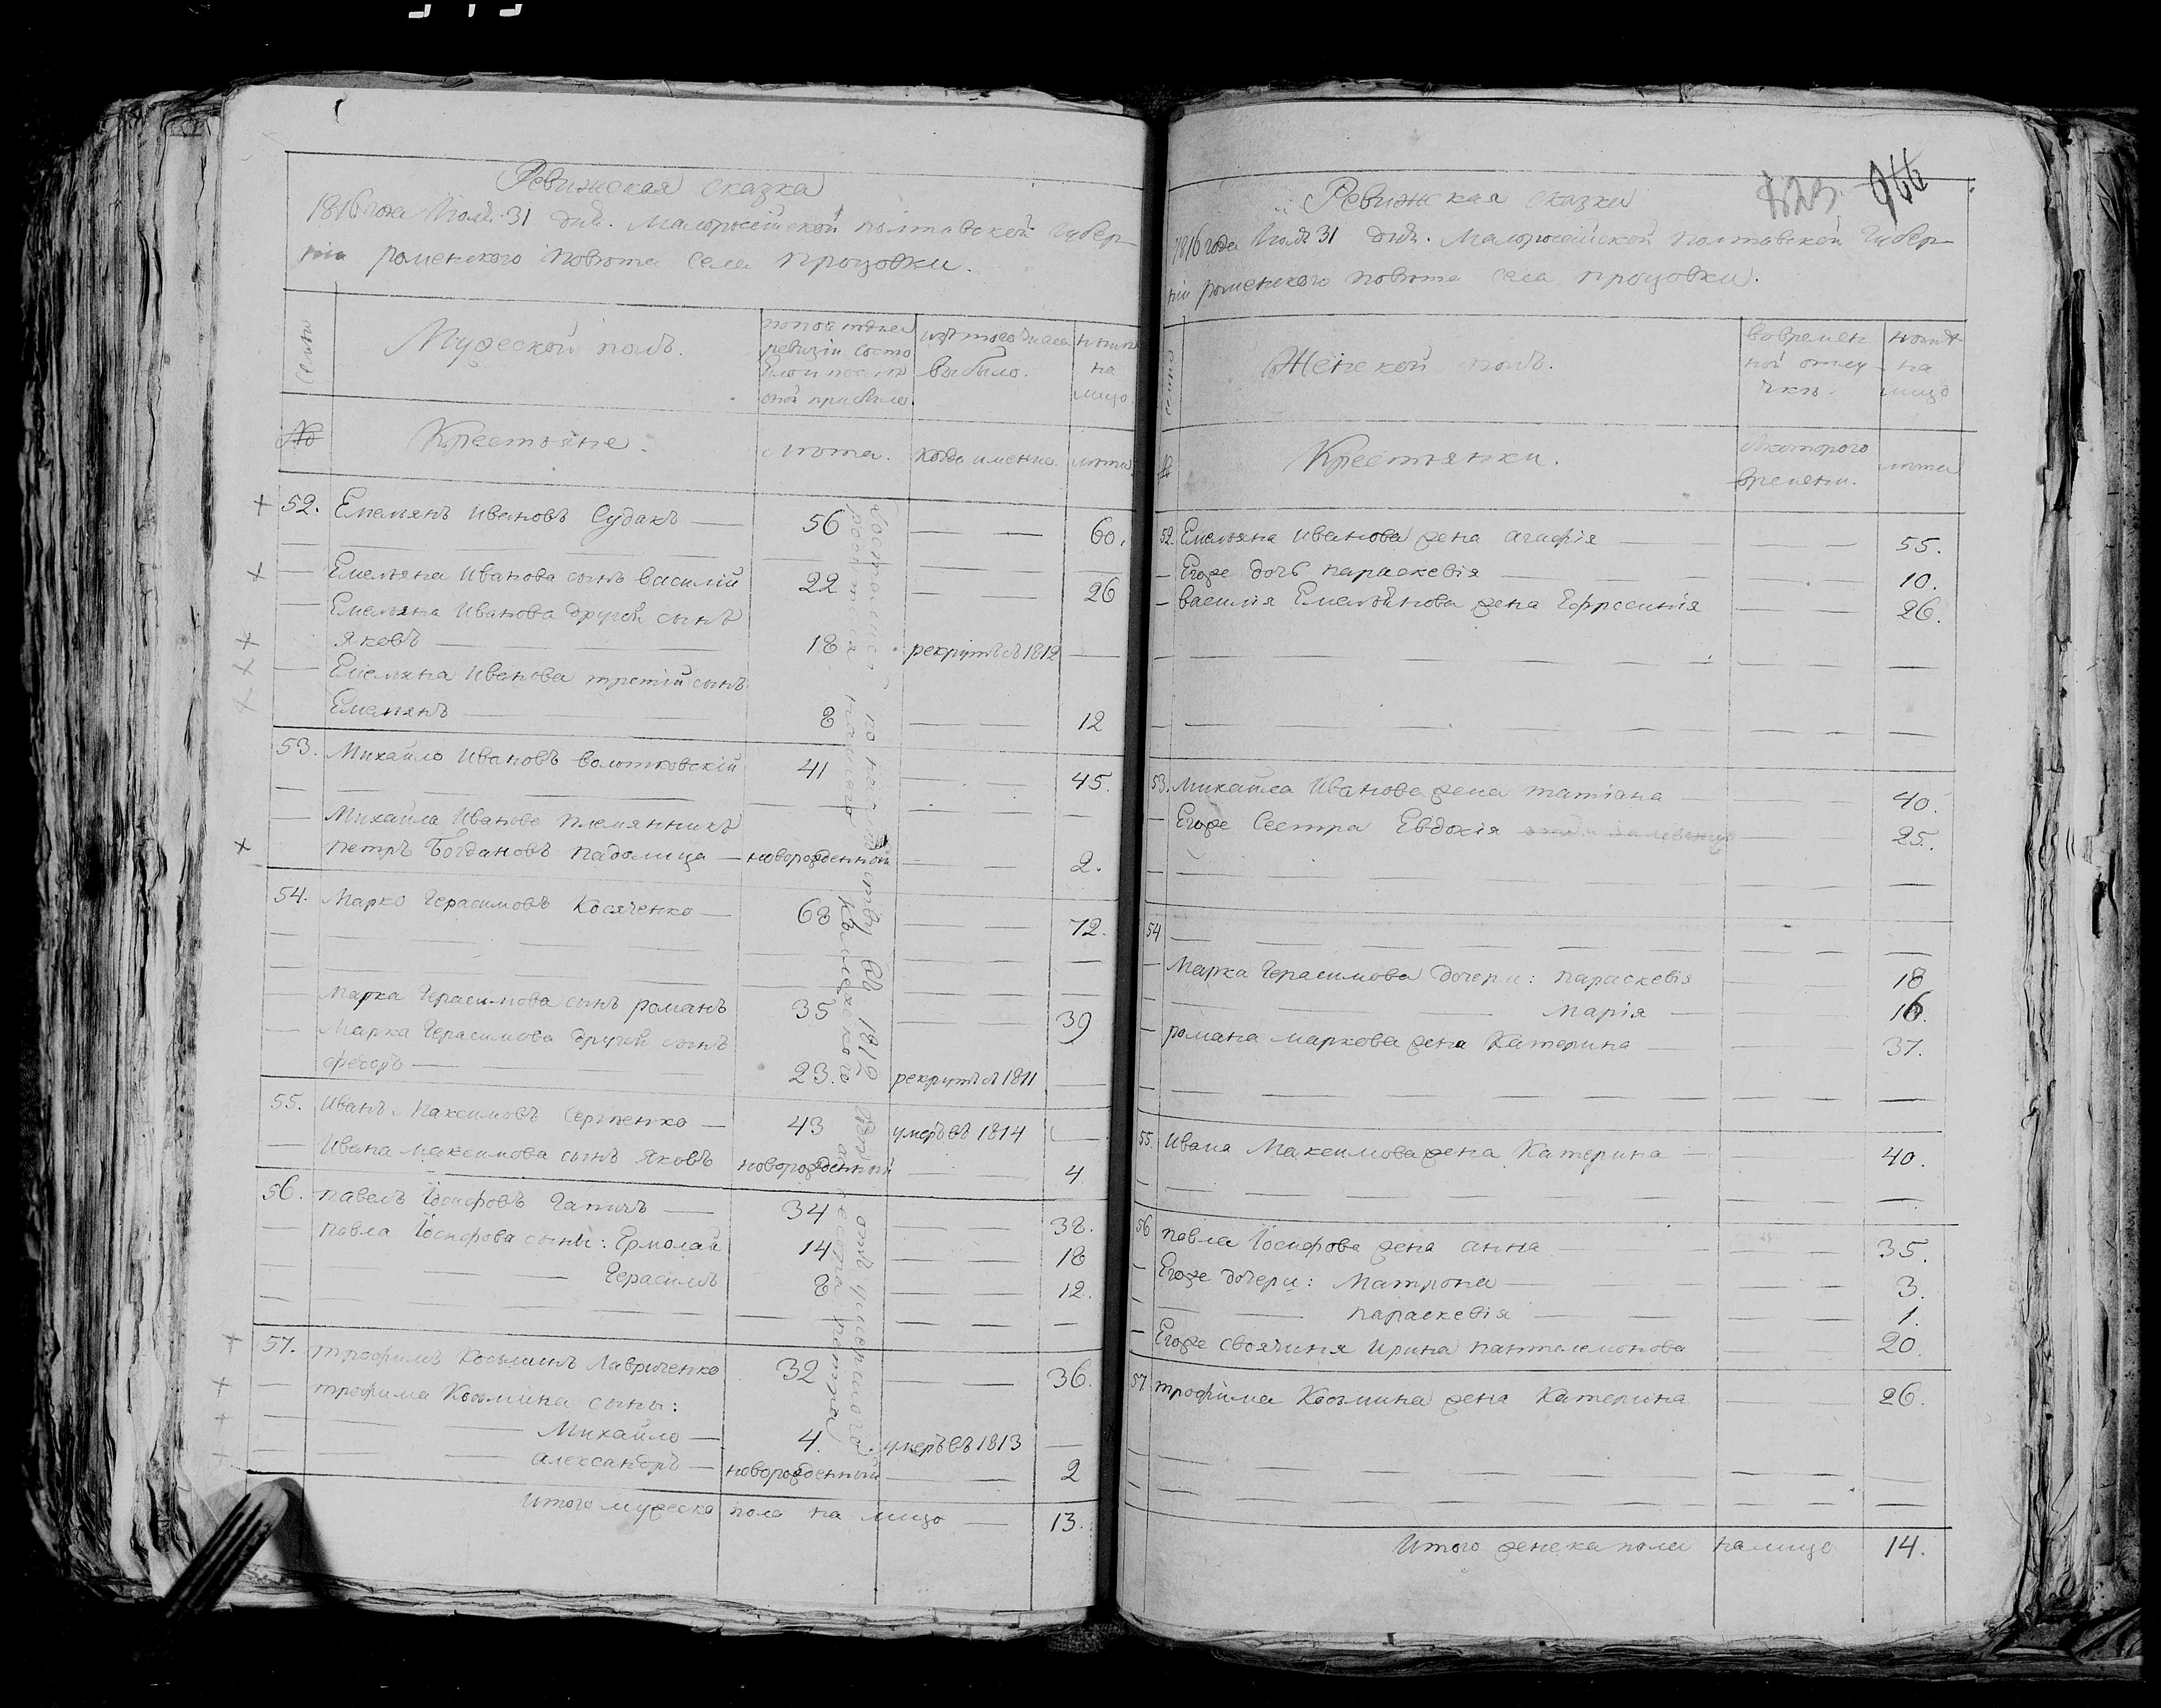 Ревижская сказка
1816 года Июля 31 дня. Малороссійской полтавской Губер-
ніи роменского повѣта села процовки.
Семьи
Мужеской полъ.
по последней
ревизіи состо
яло и после
оной прибыло.
изъ того числа
выбыло.
ныне
на
лицо
№
Крестьяне.
лѣта.
когда именно.
лѣта
52. Емельянъ Ивановъ Судакъ 56 60.
Емельяна Иванова сынъ василій 22 26
Емельяна Иванова другой сынъ
яковъ 18 рекрутъ въ 1812
Емельяна Иванова третій сынъ
Емельянъ 8 12
53. Михайло Ивановъ волотковскій 41 45.
Михайла Иванова племянникъ
петръ Богдановъ падолица новорожденный 2.
54. Марко Герасимовъ Косяченко 68 72.
Марка Герасимова сынъ романъ 35 39
Марка Герасимова другой сынъ
федоръ 23. рекрутъ въ 1811
55. Иванъ Максимовъ Сергіенко 43 умеръ въ 1814
Ивана максимова сынъ яковъ новорожденный 4
56. павелъ Іосифовъ Гапичъ 34 38.
павла Іосифова сыны: Ермолай 14 18
Герасимъ 8 12.
57. трофимъ Косьминъ Лавриченко 32 36.
трофима Косьмина сыны:
Михайло 4. умеръ въ 1813
александръ новорожденный 2
Итого мужеска пола на лицо 13.
въ 1812 отъ умершого
петра
Ревижская сказка
823. 966
1816 года Июля 31 дня. Малороссійской полтавской Губер-
ніи роменского повѣта села процовки.
Семьи
Женской полъ.
во времен
ной отлу
чкѣ.
ныне
на
лицо
№
Крестьянки.
съ которого
времени.
лѣта
52. Емельяна Иванова жена агафія 55.
Егоже дочь параскевія 10.
василія Емельянова жена Ефросинія 26.
53. михайла Иванова жена татіана 40.
Егоже Сестра Евдокія 25.
54
Марка Герасимова дочери: параскевія 18
Марія 16.
романа маркова жена Катерина 37.
55. Ивана Максимова жена Катерина 40.
56 павла Іосифова жена анна 35.
Егоже дочери: Матрона 3.
параскевія 1.
Егоже своячиня Ирина пантелемонова 20.
57 трофима Косьмина жена Катерина 26.
Итого женска пола налицо 14.